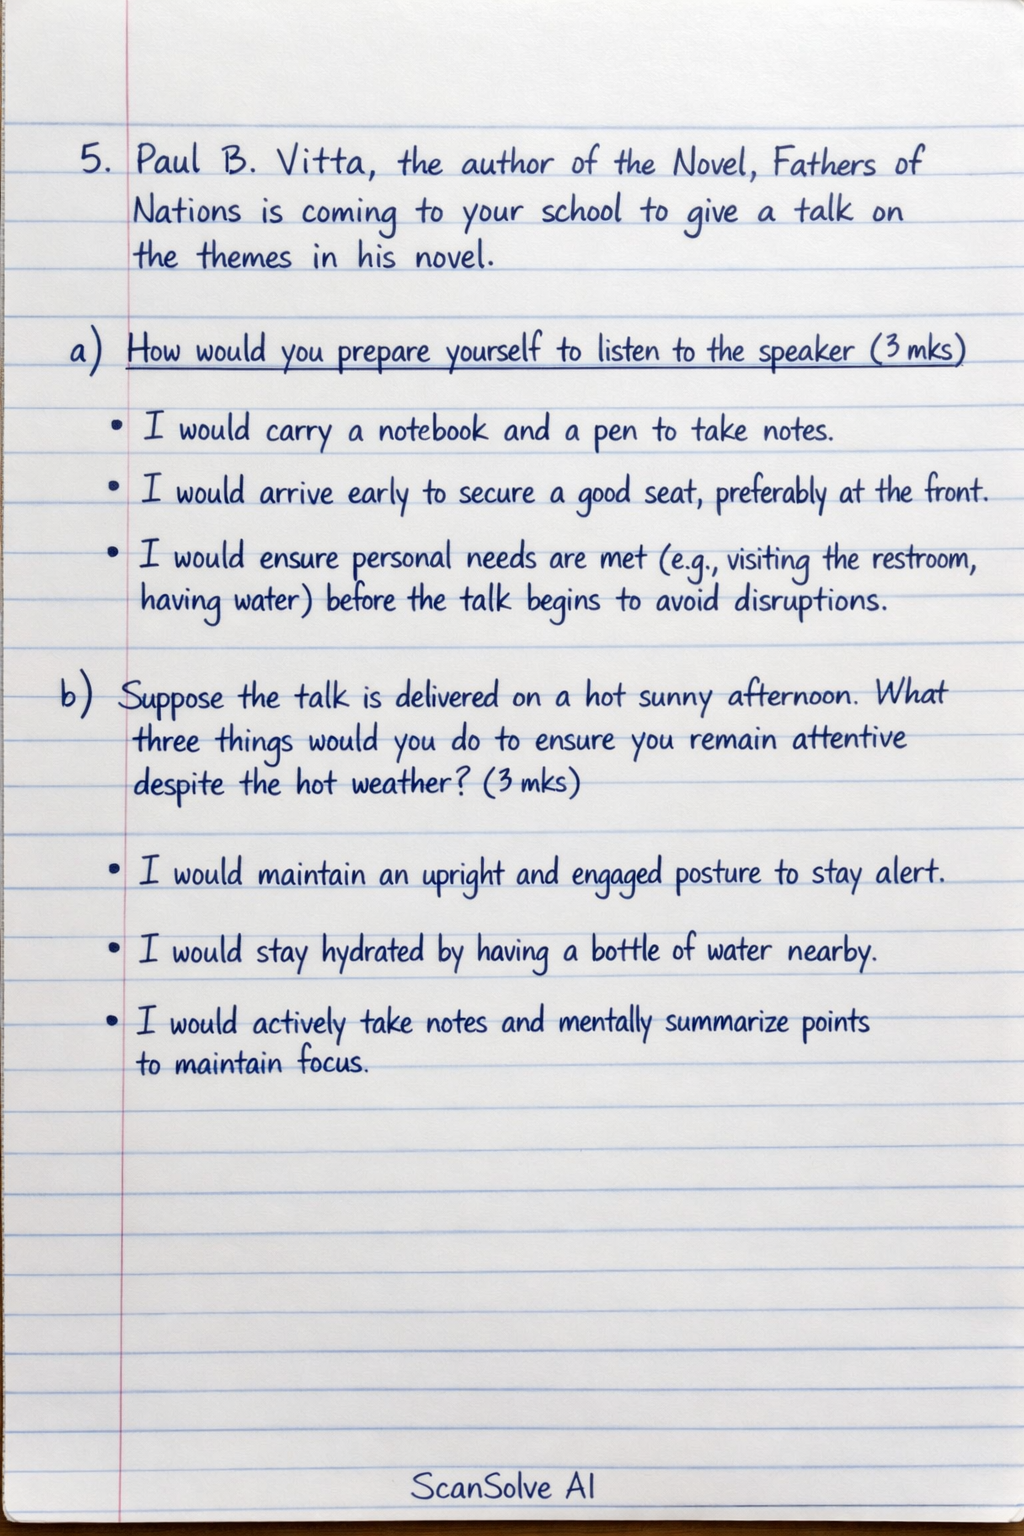 5. Paul B. Vitta, the author of the Novel, Fathers of
Nations is coming to your school to give a talk on
the themes in his novel.
a) How would you prepare yourself to listen to the speaker (3 mks)
• I would carry a notebook and a pen to take notes.
• I would arrive early to secure a good seat, preferably at the front.
• I would ensure personal needs are met (e.g., visiting the restroom,
having water) before the talk begins to avoid disruptions.
b) Suppose the talk is delivered on a hot sunny afternoon. What
three things would you do to ensure you remain attentive
despite the hot weather? (3 mks)
• I would maintain an upright and engaged posture to stay alert.
• I would stay hydrated by having a bottle of water nearby.
• I would actively take notes and mentally summarize points
to maintain focus.
ScanSolve AI